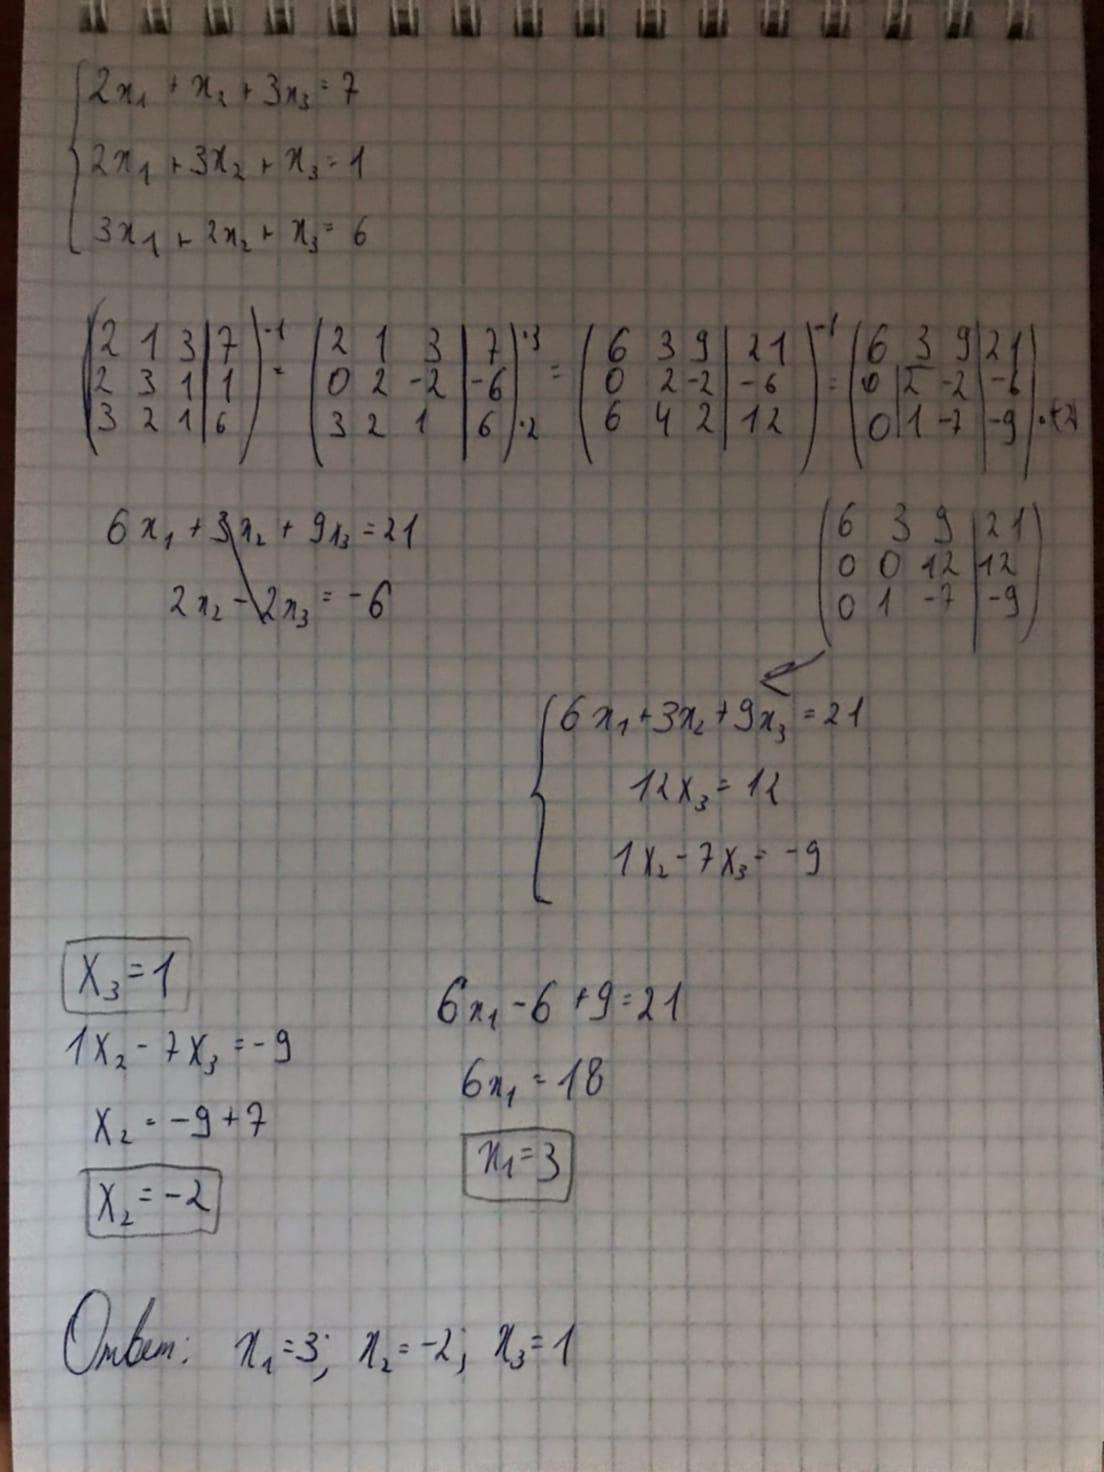 2x₁ + x₂ + 3x₃ = 7
2x₁ + 3x₂ + x₃ = 1
3x₁ + 2x₂ + x₃ = 6
(2 1 3 | 7) ·-1 (2 1 3 | 7) ·3 (6 3 9 | 21) ·-1 (6 3 9 | 21)
(2 3 1 | 1) = (0 2 -2 | -6) = (0 2 -2 | -6) = (0 2 -2 | -6)
(3 2 1 | 6) (3 2 1 | 6) ·2 (6 4 2 | 12) (0 1 -7 | -9) ·(-2)
6x₁ + 3x₂ + 9x₃ = 21
2x₂ - 2x₃ = -6
(6 3 9 | 21)
(0 0 12 | 12)
(0 1 -7 | -9)
6x₁ + 3x₂ + 9x₃ = 21
12x₃ = 12
1x₂ - 7x₃ = -9
x₃ = 1
1x₂ - 7x₃ = -9
x₂ = -9 + 7
x₂ = -2
6x₁ - 6 + 9 = 21
6x₁ = 18
x₁ = 3
Ответ: x₁ = 3; x₂ = -2; x₃ = 1